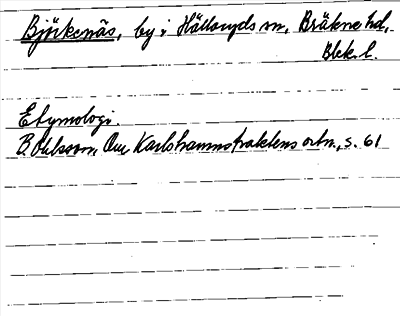 Björkenäs, by i Hällaryds sn, Bräkne hd,
Blek. l.
Etymologi.
B. Ohlsson, Om Karlshamnstraktens ortn., s. 61